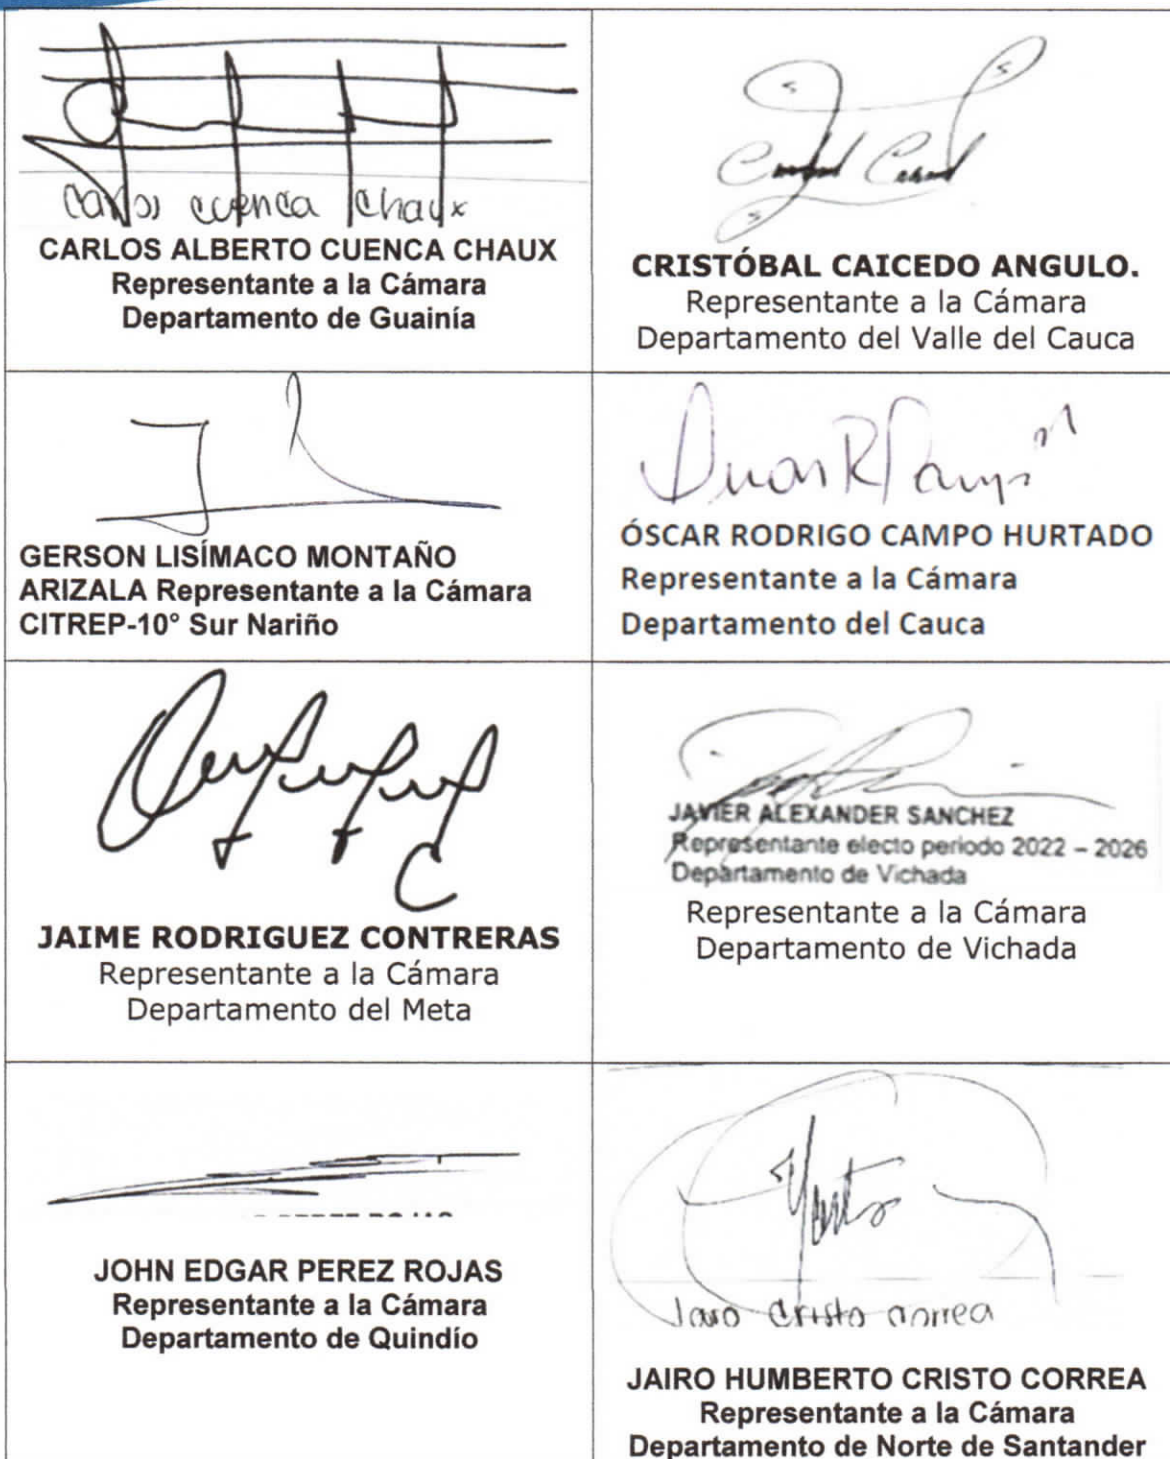 Carlos cuenca Chaux
CARLOS ALBERTO CUENCA CHAUX
Representante a la Cámara
Departamento de Guainía
CRISTÓBAL CAICEDO ANGULO.
Representante a la Cámara
Departamento del Valle del Cauca
GERSON LISÍMACO MONTAÑO
ARIZALA Representante a la Cámara
CITREP-10° Sur Nariño
ÓSCAR RODRIGO CAMPO HURTADO
Representante a la Cámara
Departamento del Cauca
JAIME RODRIGUEZ CONTRERAS
Representante a la Cámara
Departamento del Meta
JAVIER ALEXANDER SANCHEZ
Representante electo periodo 2022 – 2026
Departamento de Vichada
Representante a la Cámara
Departamento de Vichada
JOHN EDGAR PEREZ ROJAS
Representante a la Cámara
Departamento de Quindío
Cristo Correa
JAIRO HUMBERTO CRISTO CORREA
Representante a la Cámara
Departamento de Norte de Santander